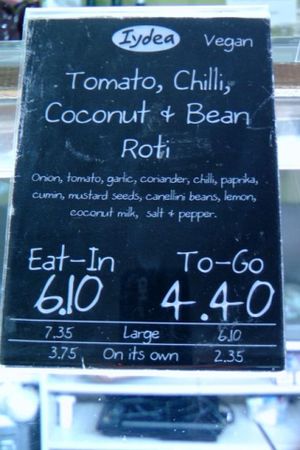 Iydea Vegan
Tomato, Chilli,
Coconut & Bean
Roti
Onion, tomato, garlic, coriander, chilli, paprika,
cumin, mustard seeds, canellini beans, lemon,
coconut milk, salt & pepper.
Eat-In To-Go
6.10 4.40
7.35 Large 6.10
3.75 On its own 2.35